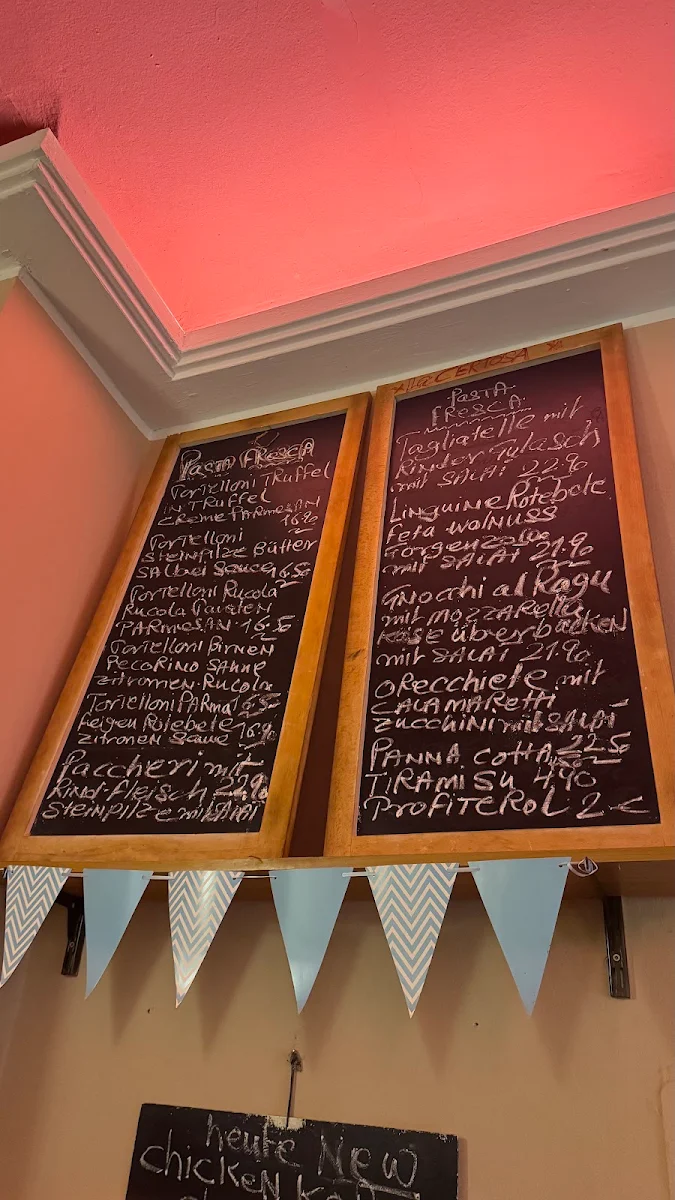 Pasta FRESCA
Tortelloni TRüffel
IN TRüffel
CReme PARmesAN
16.90
Tortelloni
STEINPilze Bütter
SAlbei Sauce 16.50
Tortelloni Rucola
Rucola
PARmesAN 16.5
Tortelloni BiRNEN
PecoRiNO SAHNE
zitronen-Rucola
TortelloniPARMa 16.50
feigen Rotebete 16.90
Zitronen Sauce
Paccheri mit
Rind-fleisch 22.90
STeinpilze mit SAlAT
CERTOSA
PASTA
FRESCA
Tagliatelle mit
Rinder Gulasch
mit SALAT 22.90
Linguine Rotebete
Feta walnuss
mit SALAT 21.90
GNocchi al Ragu
mit MOZZARella
Käse überbacken
mit SALAT 21.90
ORecchiete mit
CALAMARETTi
ZUCCHiNi mit SALAT
22.5
PANNA COTTA
TiRAMiSu 4.90
PROFiTEROL 2
heute New
chicken